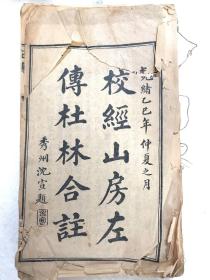 光緒乙巳年 仲夏之月
校經山房左
傳杜林合註
秀州沈宣題